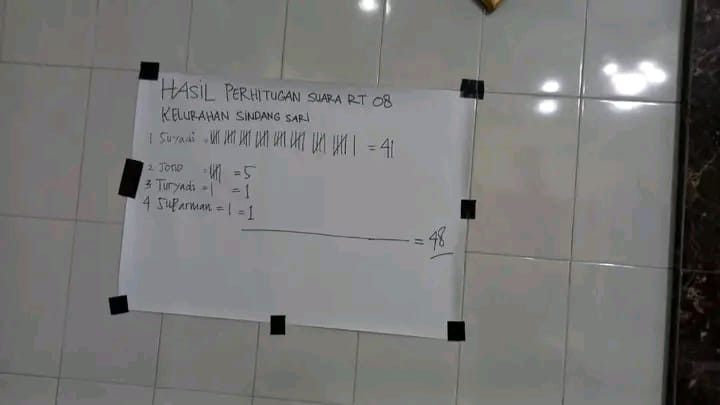 HASIL PERHITUGAN SUARA RT 08
KELURAHAN SINDANG SARI
1 Suyadi = 卌 卌 卌 卌 卌 卌 卌 卌 | = 41
2 Jono = 卌 = 5
3 Turyadi = | = 1
4 Suparman = | = 1
= 48